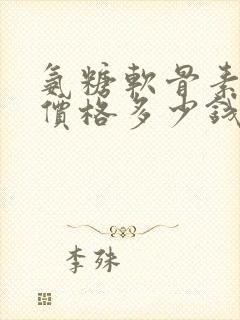 氨糖軟骨素
價格多少錢
李殊